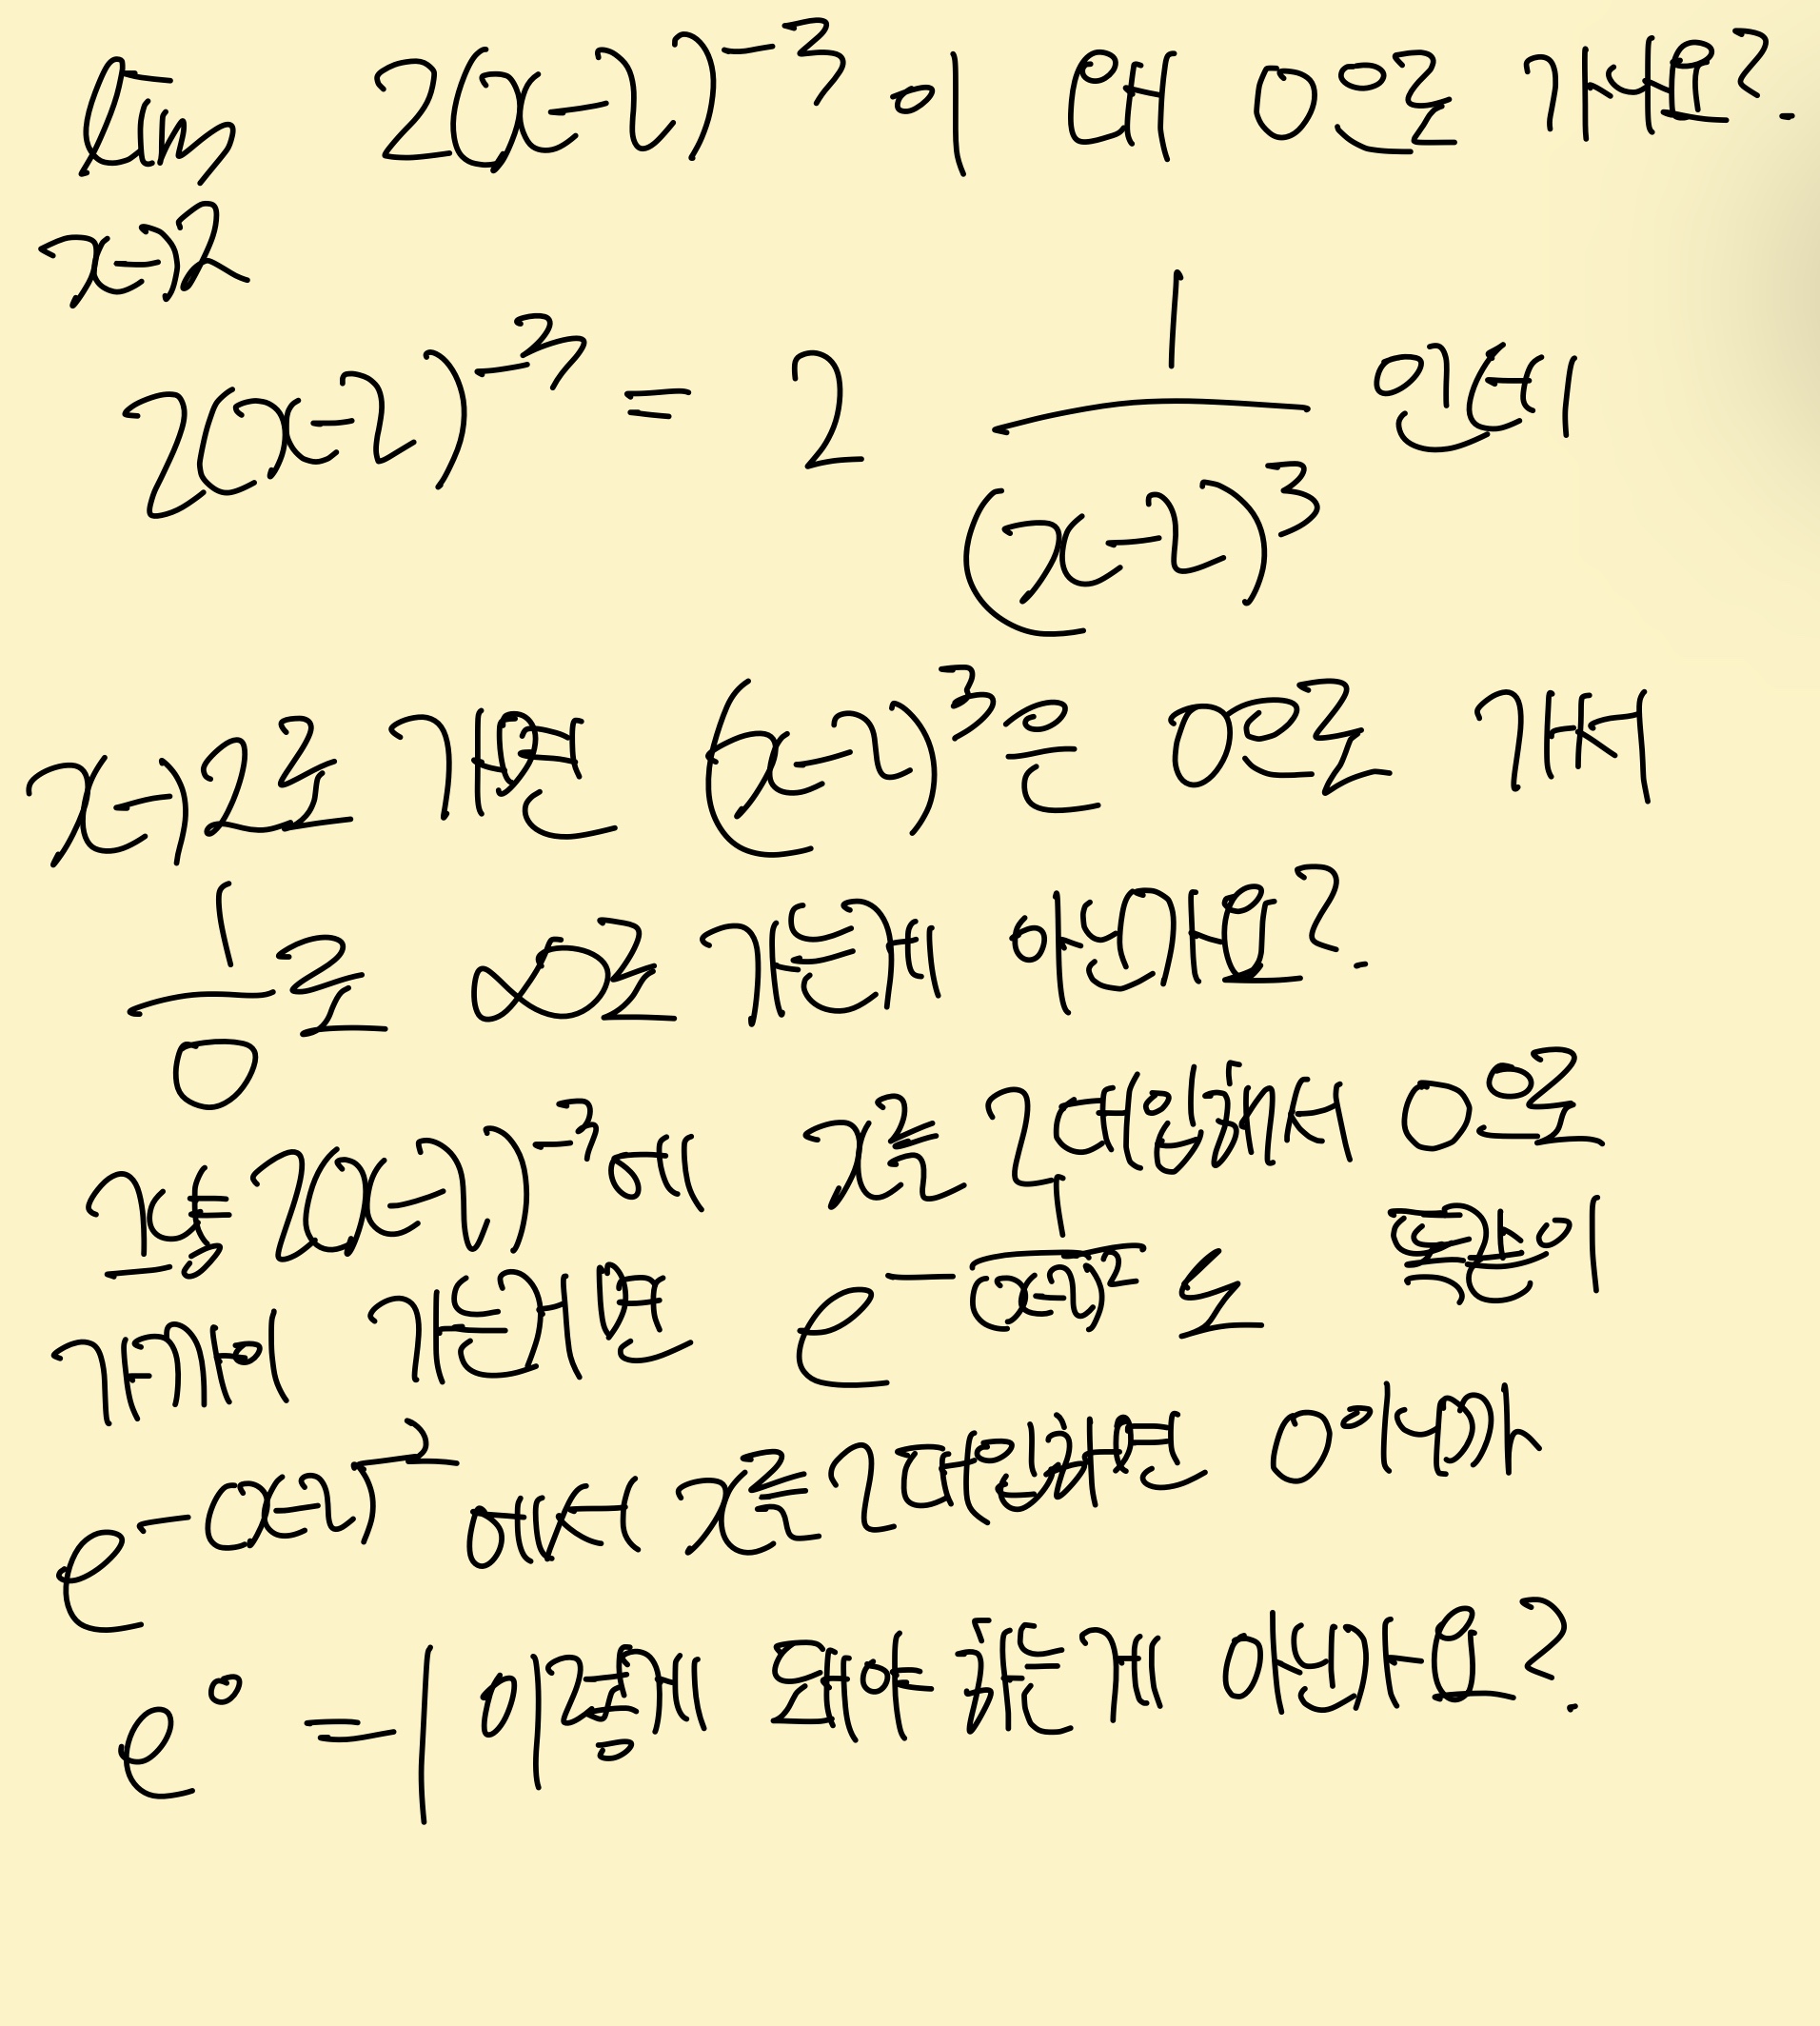 lim 2(x-2)^{-3} 이 왜 0으로 가나요?.
x→2
2(x-2)^{-3} = 2 \frac{1}{(x-2)^3} 인데
x→2로 가면 (x-2)^3은 0으로 가서
\frac{1}{0}로 ∞로 가는거 아닌가요?.
2(x-2)^{-3}에 x=2 대입해서 0으로
가까이 가는거면 e^{-\frac{1}{(x-2)^2}}도
e^{-(x-2)^2}에서 x=2 대입하면 0이니까
e^0 = 1 이렇게 돼야 하는거 아닌가요?.